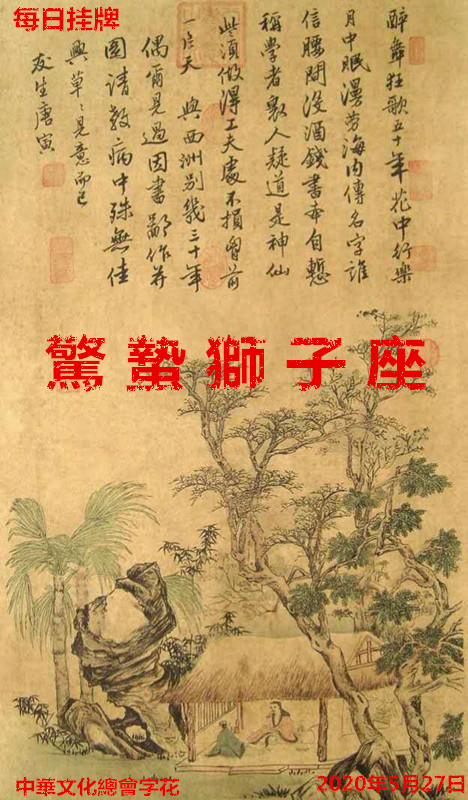 每日挂牌
醉舞狂歌五十年花中行樂
月中眠漫勞海內傳名字誰
信腰間沒酒錢書本自慙
稱學者衆人疑道是神仙
些須做得工夫處不損胸前
一片天 與西洲別幾三十年
偶爾見過因書鄙作并
圖請教病中殊無佳
興草〻見意而已
友生唐寅
驚蟄獅子座
中華文化總會学花
2020年5月27日